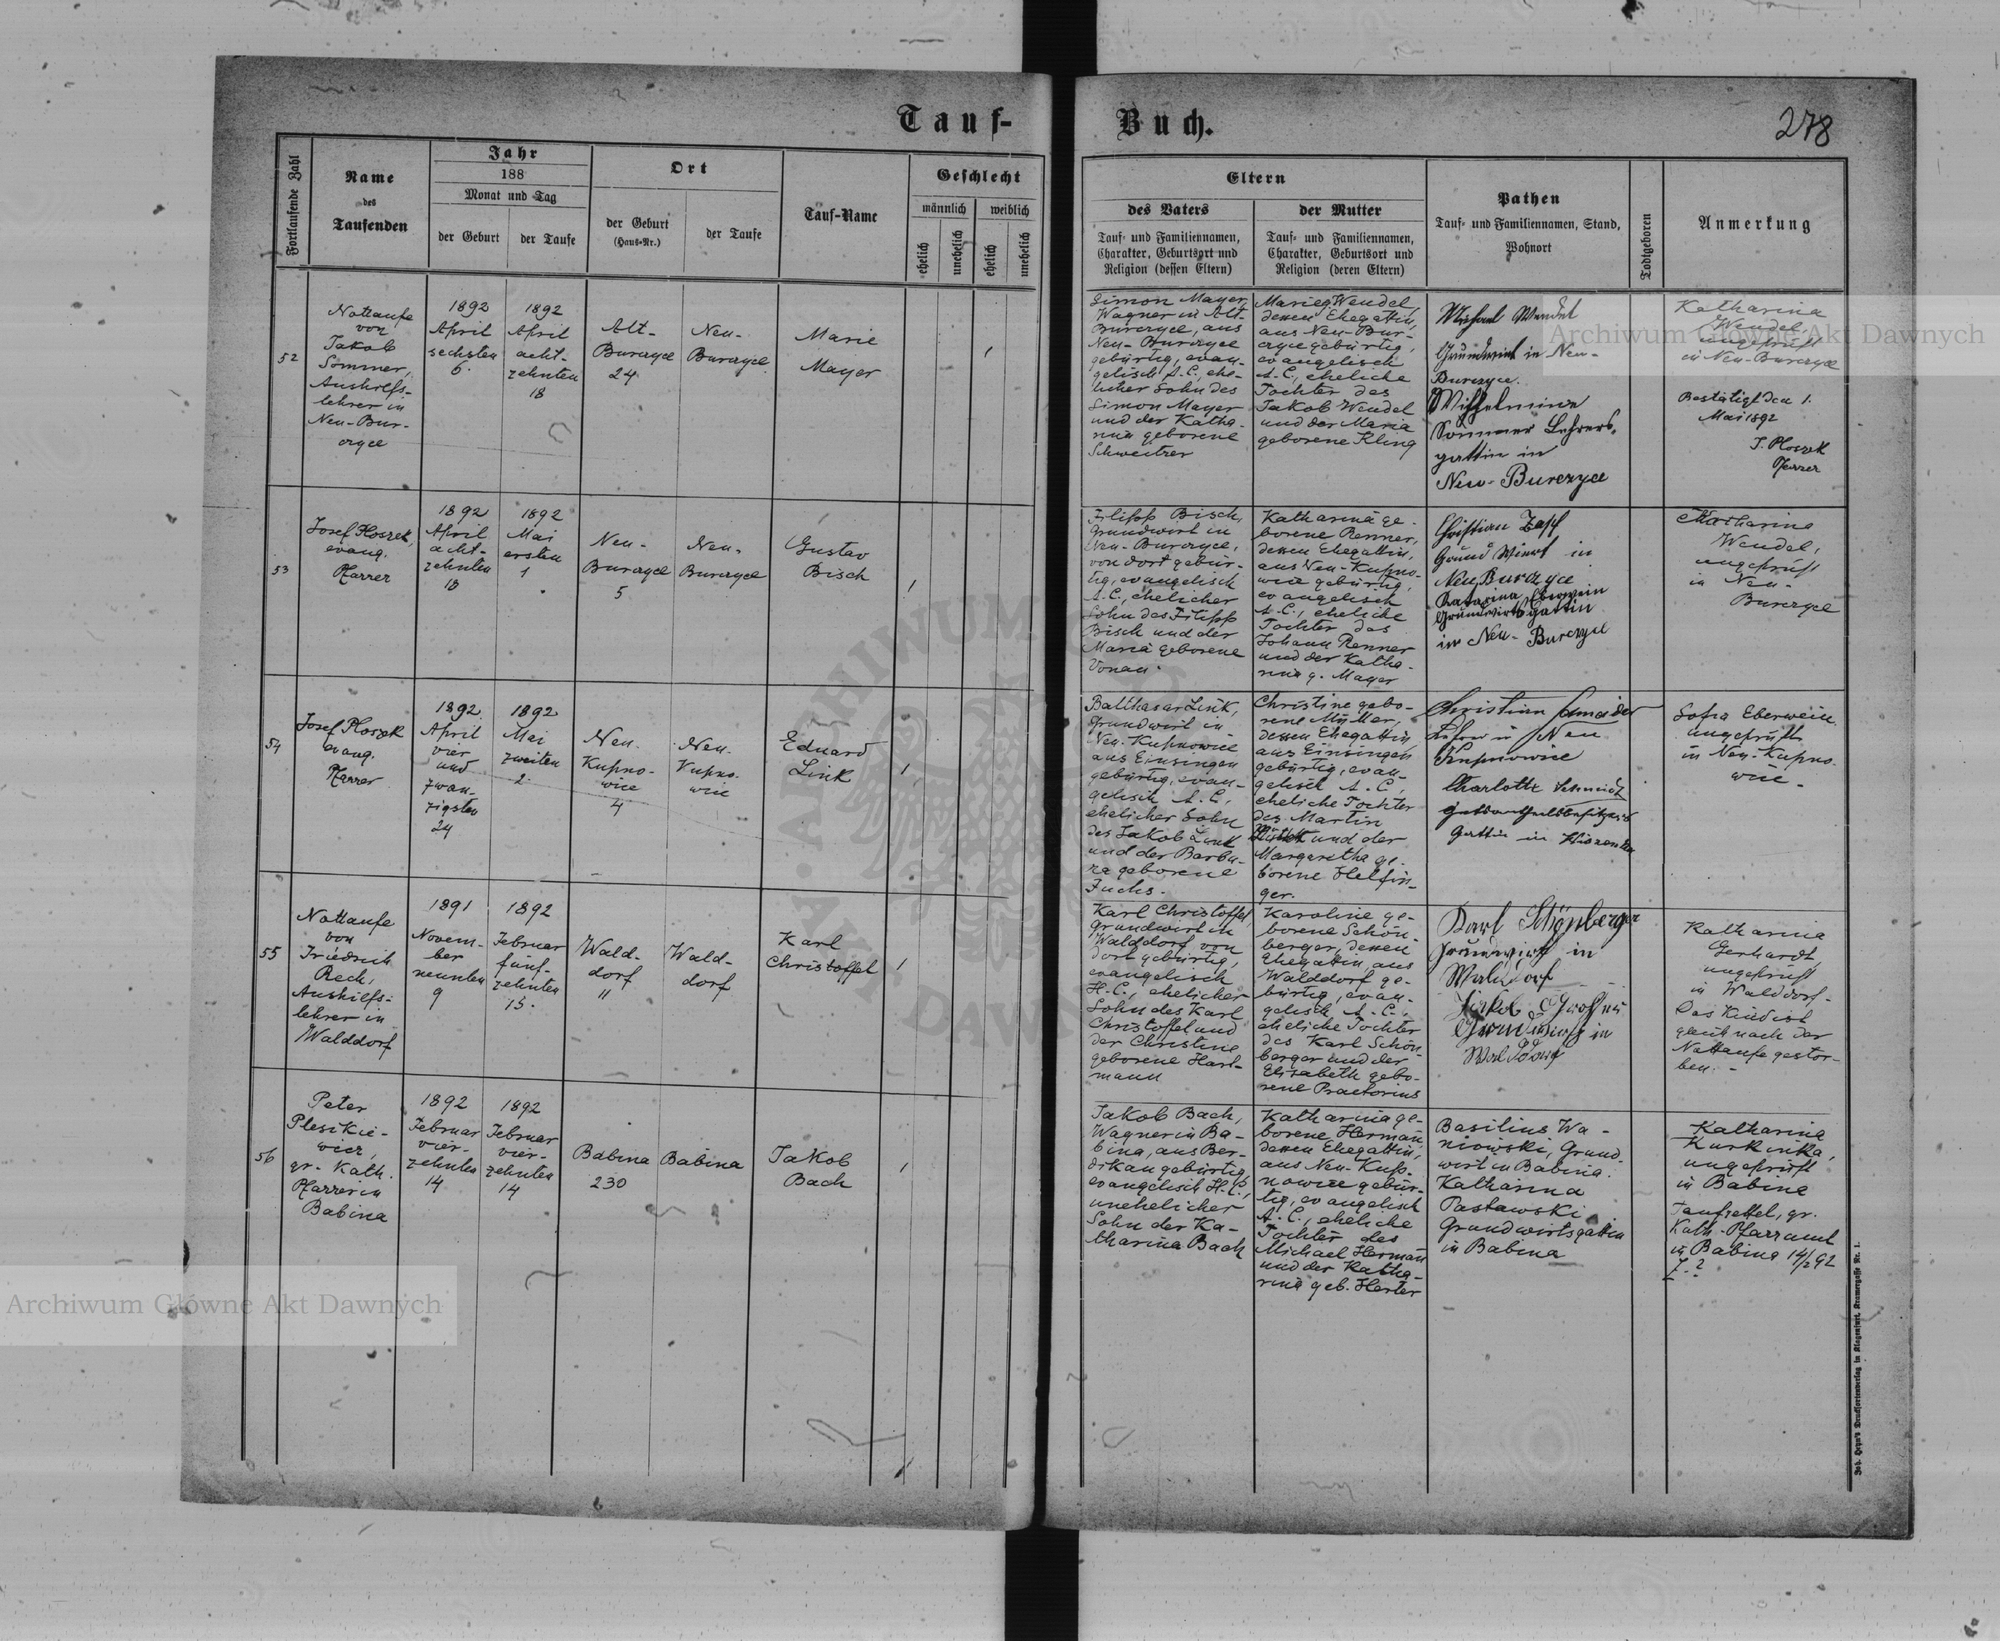 Tauf-
Buch.
278
Fortlaufende Zahl
Name
des
Taufenden
Jahr
188
Monat und Tag
der Geburt
der Taufe
Ort
der Geburt
(Haus-Nr.)
der Taufe
Tauf-Name
Geschlecht
männlich
weiblich
ehelich
unehelich
ehelich
unehelich
Eltern
des Vaters
Tauf- und Familiennamen,
Charakter, Geburtsort und
Religion (dessen Eltern)
der Mutter
Tauf- und Familiennamen,
Charakter, Geburtsort und
Religion (deren Eltern)
Pathen
Tauf- und Familiennamen, Stand,
Wohnort
Todtgeboren
Anmerkung
52
Nottaufe
von
Jakob
Sommer,
Aushilfs-
lehrer in
Neu-Bur-
czyce
1892
April
sechsten
6.
1892
April
acht-
zehnten
18
Alt-
Burczyce
24
Neu-
Burczyce
Marie
Mayer
Simon Mayer,
Wagner in Alt-
Burczyce, aus
Neu-Burczyce
gebürtig, evan-
gelisch A.C., ehe-
licher Sohn des
Simon Mayer
und der Katha-
rina geborene
Schweitzer
Marie g. Wendel,
dessen Ehegattin,
aus Neu-Bur-
czyce gebürtig,
evangelisch
A.C., eheliche
Tochter des
Jakob Wendel
und der Maria
geborene Kling
Michael Wendel
Grundwirt in Neu-
Burczyce.
Wilhelmine
Sommer Lehrers-
gattin in
Neu-Burczyce
Katharina
Wendel,
ungeprüft
in Neu-Burczyce
Bestätigt den 1.
Mai 1892
J. Ploszek
Pfarrer
53
Josef Ploszek,
evang.
Pfarrer
1892
April
acht-
zehnten
18
1892
Mai
ersten
1
Neu-
Burczyce
5
Neu-
Burczyce
Gustav
Bisch
Filipp Bisch,
Grundwirt in
Neu-Burczyce,
von dort gebür-
tig, evangelisch
A.C., ehelicher
Sohn des Filipp
Bisch und der
Maria geborene
Vonau.
Katharina ge-
borene Renner,
dessen Ehegattin,
aus Neu-Kupno-
wice gebürtig,
evangelisch
A.C., eheliche
Tochter des
Johann Renner
und der Katha-
rina g. Mayer
Christian Zapf
Grund Wirt in
Neu Burczyce
Katarina Eberwein
Grundwirts Gattin
in Neu-Burczyce
Katharina
Wendel,
ungeprüft
in Neu-
Burczyce
54
Josef Ploszek
evang.
Pfarrer
1892
April
vier
und
zwan-
zigsten
24
1892
Mai
zweiten
2.
Neu-
Kupno-
wice
4
Neu-
Kupno-
wice
Eduard
Link
Balthasar Link,
Grundwirt in
Neu-Kupnowice
aus Einsingen
gebürtig, evan-
gelisch A.C.,
ehelicher Sohn
des Jakob Link
und der Barba-
ra geborene
Fuchs.
Christine gebo-
rene Müller,
dessen Ehegattin,
aus Einsingen
gebürtig, evan-
gelisch A.C.,
eheliche Tochter
des Martin
Müller und der
Margaretha ge-
borene Helfin-
ger.
Christian
in Neu
Kupnowice
Charlotte Schmidt
Gattin in
Sofia Eberwein
ungeprüft
in Neu-Kupno-
wice.
55
Nottaufe
von
Friedrich
Rech,
Aushilfs-
lehrer in
Walddorf
1891
Novem-
ber
neunten
9
1892
Februar
fünf-
zehnten
15.
Wald-
dorf
11
Wald-
dorf
Karl
Christoffel
Karl Christoffel,
Grundwirt in
Walddorf von
dort gebürtig,
evangelisch
H.C., ehelicher
Sohn des Karl
Christoffel und
der Christine
geborene Hart-
mann
Karoline ge-
borene Schön-
berger, dessen
Ehegattin, aus
Walddorf ge-
bürtig, evan-
gelisch A.C.,
eheliche Tochter
des Karl Schön-
berger und der
Elisabeth gebo-
rene Praetorius
Karl Schönberger
Grundwirt in
Walddorf
Jakob
Grundwirt in
Walddorf
Katharina
Gerhardt,
ungeprüft
in Walddorf.
Das Kind ist
gleich nach der
Nottaufe gestor-
ben.-
56
Peter
Plesikie-
wicz,
gr. kath.
Pfarrer in
Babina
1892
Februar
vier-
zehnten
14
1892
Februar
vier-
zehnten
14
Babina
230
Babina
Jakob
Bach
Jakob Bach,
Wagner in Ba-
bina, aus Ber-
dikau gebürtig,
evangelisch H.C.,
unehelicher
Sohn der Ka-
tharina Bach
Katharina ge-
borene Herman,
dessen Ehegattin,
aus Neu-Kup-
nowice gebür-
tig, evangelisch
A.C., eheliche
Tochter des
Michael Herman
und der Katha-
rina geb. Herter
Basilius Wa-
niowski, Grund-
wirt in Babina.
Katharina
Pastawski
Grundwirtsgattin
in Babina
Katharina
Kurkinka,
ungeprüft
in Babina
Taufzettel, gr.
Kath. Pfarramt
in Babina 14/2 92
Z. ?
Joh. Heyn's Drucksortenverlag in Klagenfurt, Kramergasse Nr. 1.
Archiwum Główne Akt Dawnych
Archiwum Główne Akt Dawnych
ARCHIWUM
AKT DAWNYCH